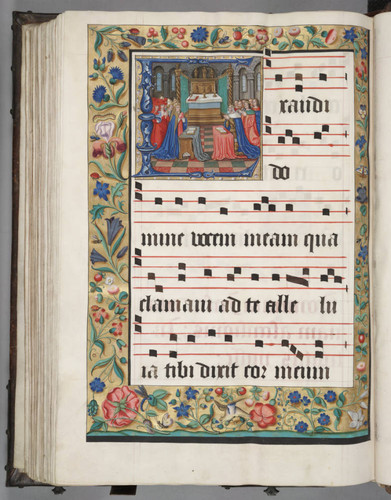 Exaudi
do
mine vocem meam qua
clamavi ad te alle lu
ia tibi dixit cor meum